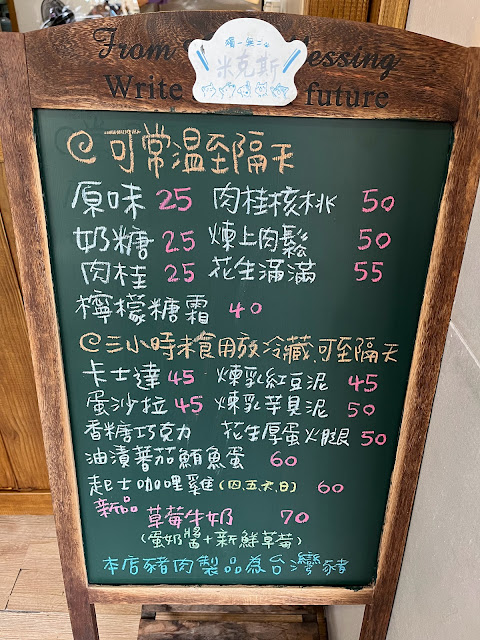 From
essing
Write
future
獨一無二
米克斯
@可常溫至隔天
原味 25 肉桂核桃 50
奶糖 25 煉上肉鬆 50
肉桂 25 花生滿滿 55
檸檬糖霜 40
@三小時未食用放冷藏,可至隔天
卡士達 45 煉乳紅豆泥 45
蛋沙拉 45 煉乳芋見泥 50
香糖巧克力 花生厚蛋火腿 50
油漬蕃茄鮪魚蛋 60
起士咖哩雞(四、五、六、日) 60
新品 草莓牛奶 70
(蛋奶醬+新鮮草莓)
本店豬肉製品為台灣豬